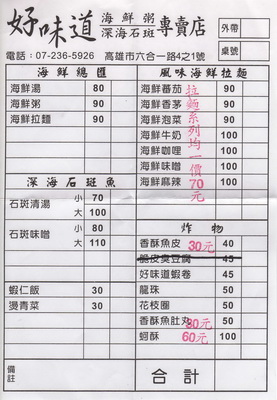 好味道 海鮮粥 深海石斑 專賣店
外帶
桌號
電話：07-236-5926 高雄市六合一路4之1號
海鮮總匯
海鮮湯 80
海鮮粥 90
海鮮拉麵 90
深海石斑魚
石斑清湯 小 70
大 100
石斑味噌 小 80
大 110
蝦仁飯 30
燙青菜 30
風味海鮮拉麵
海鮮番茄 90
海鮮香茅 90
海鮮泡菜 90
海鮮牛奶 100
海鮮咖哩 100
海鮮味噌 100
海鮮麻辣 100
拉麵系列均一價70元
炸物
香酥魚皮 30元 40
脆皮臭豆腐 45
好味道蝦卷 45
龍珠 50
花枝圈 50
香酥魚肚丸 80元 50
蚵酥 60元 100
備註
合計